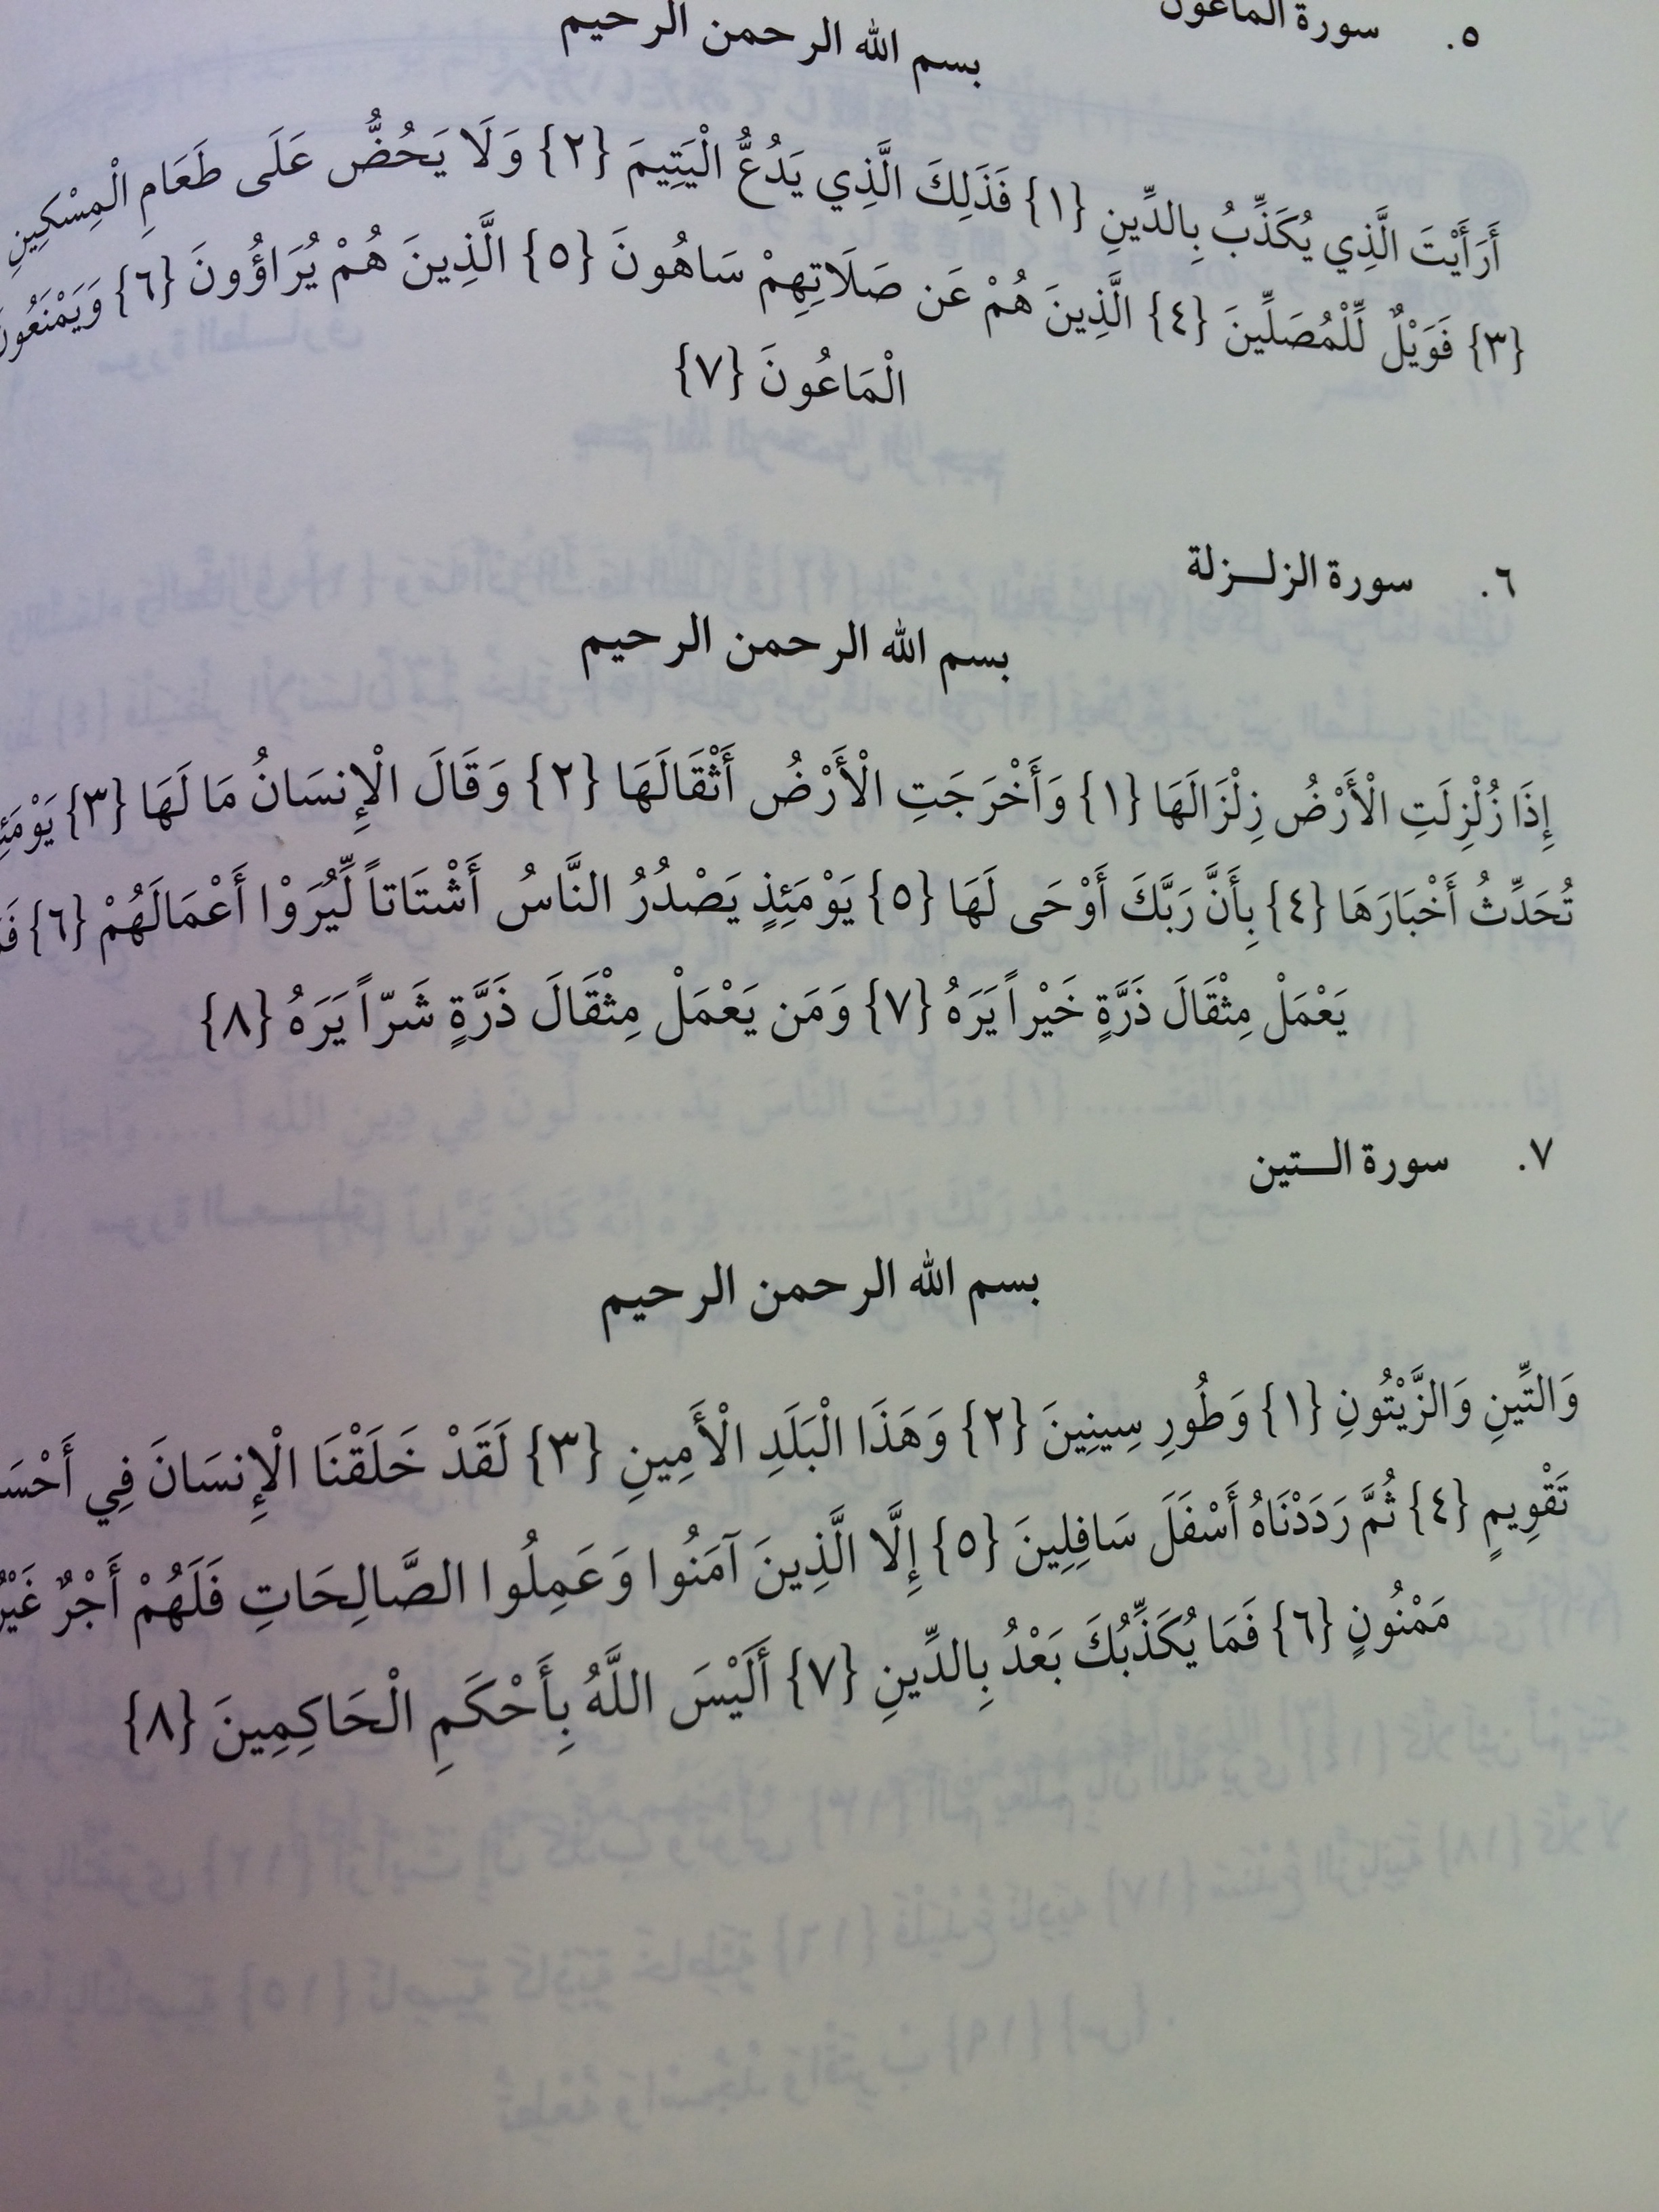 ٥. سورة الماعون
بسم الله الرحمن الرحيم
أَرَأَيْتَ الَّذِي يُكَذِّبُ بِالدِّينِ {١} فَذَلِكَ الَّذِي يَدُعُّ الْيَتِيمَ {٢} وَلَا يَحُضُّ عَلَى طَعَامِ الْمِسْكِينِ
{٣} فَوَيْلٌ لِّلْمُصَلِّينَ {٤} الَّذِينَ هُمْ عَن صَلَاتِهِمْ سَاهُونَ {٥} الَّذِينَ هُمْ يُرَاؤُونَ {٦} وَيَمْنَعُونَ
الْمَاعُونَ {٧}
٦. سورة الزلـزلة
بسم الله الرحمن الرحيم
إِذَا زُلْزِلَتِ الْأَرْضُ زِلْزَالَهَا {١} وَأَخْرَجَتِ الْأَرْضُ أَثْقَالَهَا {٢} وَقَالَ الْإِنسَانُ مَا لَهَا {٣}
تُحَدِّثُ أَخْبَارَهَا {٤} بِأَنَّ رَبَّكَ أَوْحَى لَهَا {٥} يَوْمَئِذٍ يَصْدُرُ النَّاسُ أَشْتَاتاً لِّيُرَوْا أَعْمَالَهُمْ {٦}
يَعْمَلْ مِثْقَالَ ذَرَّةٍ خَيْراً يَرَهُ {٧} وَمَن يَعْمَلْ مِثْقَالَ ذَرَّةٍ شَرّاً يَرَهُ {٨}
٧. سورة الـتين
بسم الله الرحمن الرحيم
وَالتِّينِ وَالزَّيْتُونِ {١} وَطُورِ سِينِينَ {٢} وَهَذَا الْبَلَدِ الْأَمِينِ {٣} لَقَدْ خَلَقْنَا الْإِنسَانَ فِي
تَقْوِيمٍ {٤} ثُمَّ رَدَدْنَاهُ أَسْفَلَ سَافِلِينَ {٥} إِلَّا الَّذِينَ آمَنُوا وَعَمِلُوا الصَّالِحَاتِ فَلَهُمْ أَجْرٌ غَيْرُ
مَمْنُونٍ {٦} فَمَا يُكَذِّبُكَ بَعْدُ بِالدِّينِ {٧} أَلَيْسَ اللَّهُ بِأَحْكَمِ الْحَاكِمِينَ {٨}